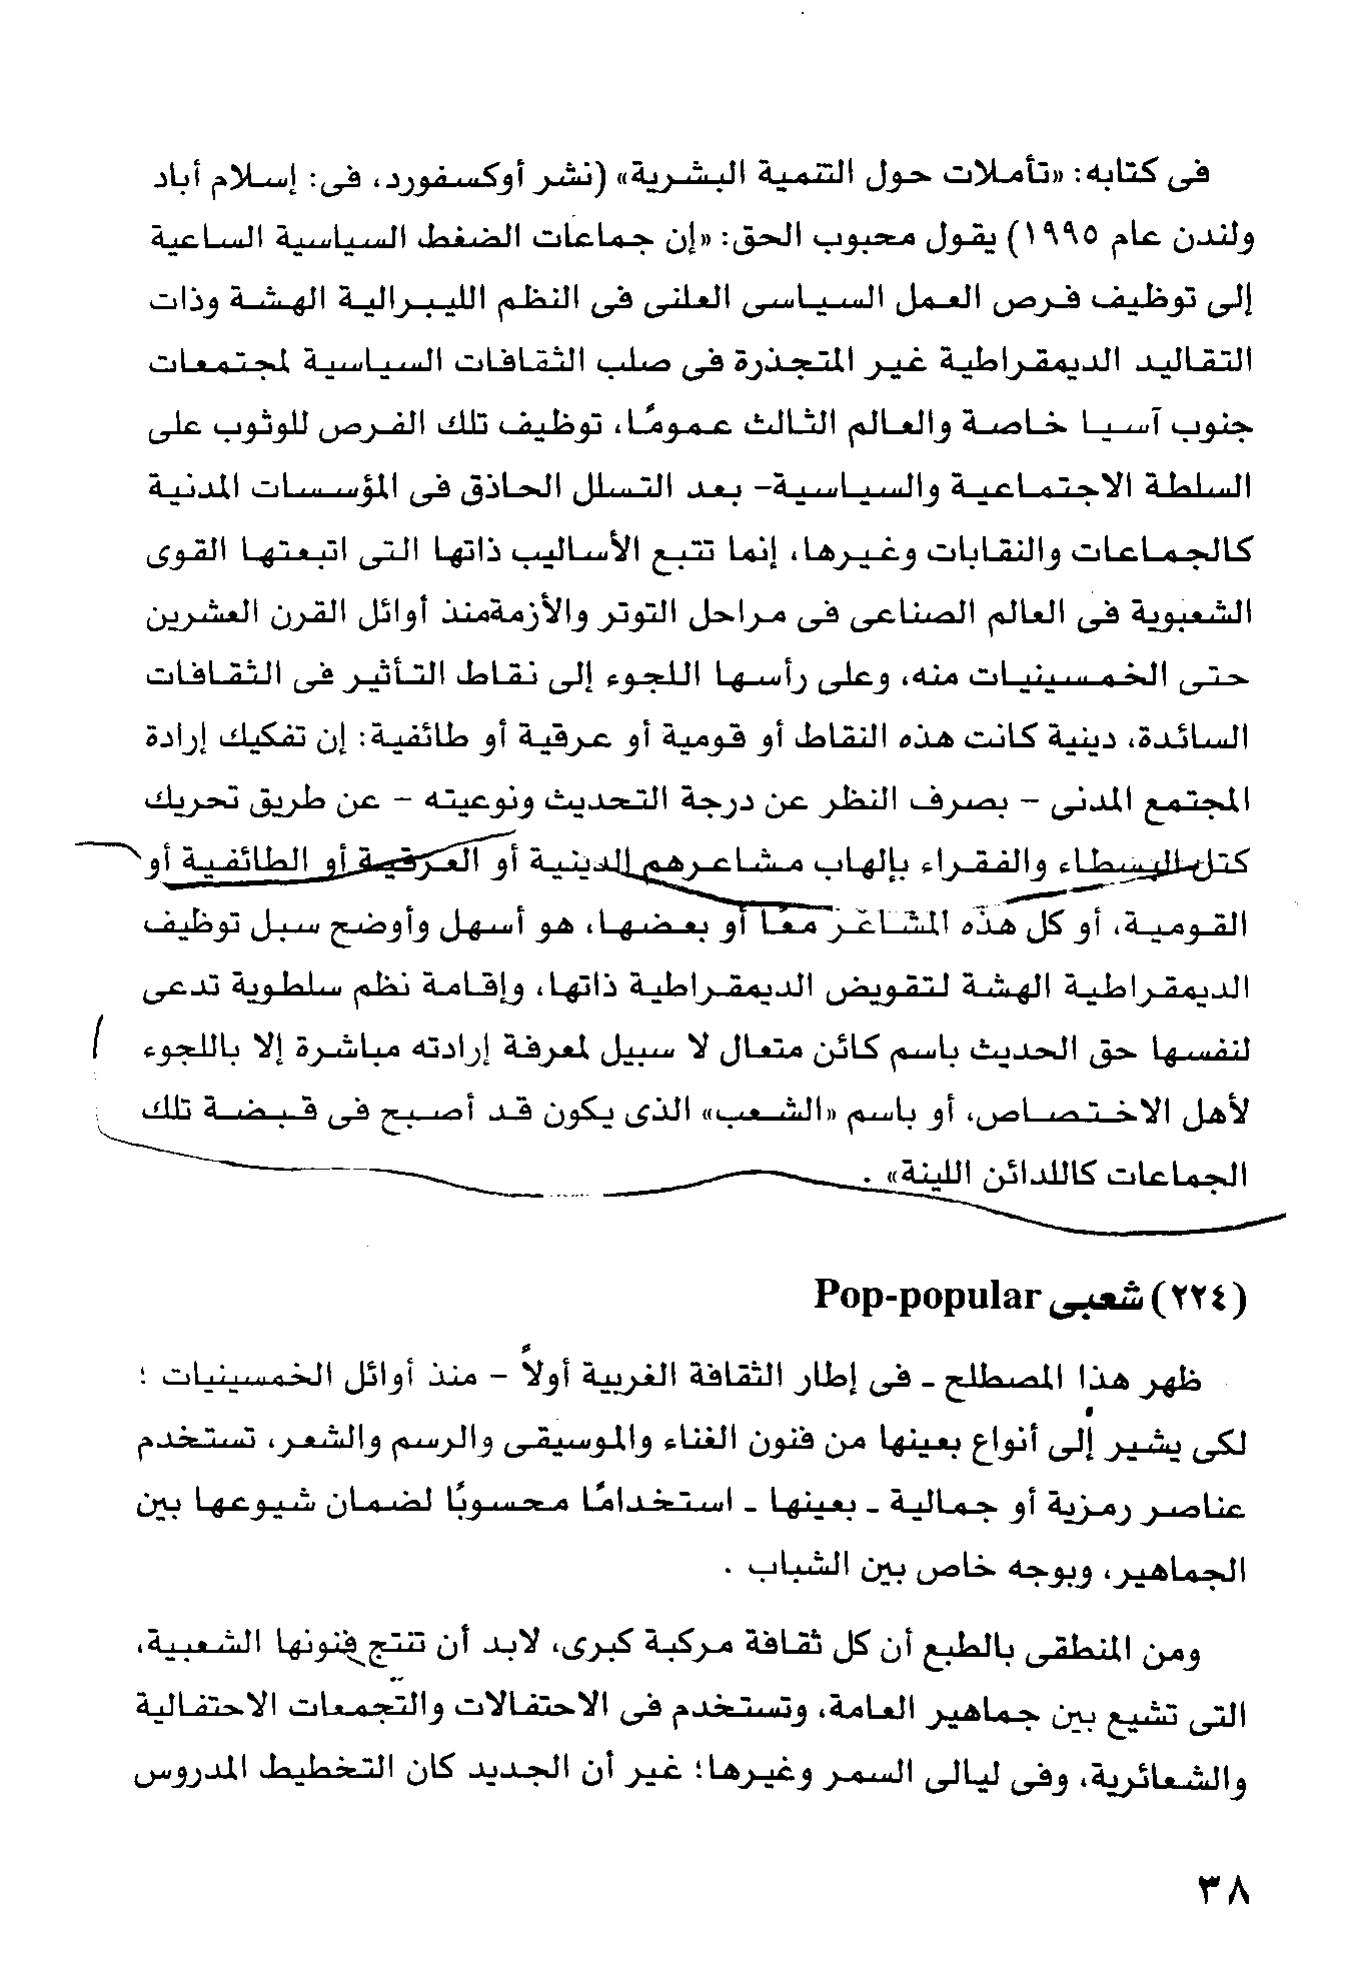 فى كتابه: «تأملات حول التنمية البشرية» (نشر أوكسفورد، فى: إسلام أباد
ولندن عام ١٩٩٥) يقول محبوب الحق: «إن جماعات الضغط السياسية الساعية
إلى توظيف فرص العمل السياسى العلنى فى النظم الليبرالية الهشة وذات
التقاليد الديمقراطية غير المتجذرة فى صلب الثقافات السياسية لمجتمعات
جنوب آسيا خاصة والعالم الثالث عمومًا، توظيف تلك الفرص للوثوب على
السلطة الاجتماعية والسياسية- بعد التسلل الحاذق فى المؤسسات المدنية
كالجماعات والنقابات وغيرها، إنما تتبع الأساليب ذاتها التى اتبعتها القوى
الشعبوية فى العالم الصناعى فى مراحل التوتر والأزمةمنذ أوائل القرن العشرين
حتى الخمسينيات منه، وعلى رأسها اللجوء إلى نقاط التأثير فى الثقافات
السائدة، دينية كانت هذه النقاط أو قومية أو عرقية أو طائفية: إن تفكيك إرادة
المجتمع المدنى - بصرف النظر عن درجة التحديث ونوعيته - عن طريق تحريك
كتل البسطاء والفقراء بإلهاب مشاعرهم الدينية أو العرقية أو الطائفية أو
القومية، أو كل هذه المشاعر معًا أو بعضها، هو أسهل وأوضح سبل توظيف
الديمقراطية الهشة لتقويض الديمقراطية ذاتها، وإقامة نظم سلطوية تدعى
لنفسها حق الحديث باسم كائن متعال لا سبيل لمعرفة إرادته مباشرة إلا باللجوء
لأهل الاختصاص، أو باسم «الشعب» الذى يكون قد أصبح فى قبضة تلك
الجماعات كاللدائن اللينة» .
(٢٢٤) شعبى Pop-popular
ظهر هذا المصطلح ـ فى إطار الثقافة الغربية أولاً - منذ أوائل الخمسينيات ؛
لكى يشير إلى أنواع بعينها من فنون الغناء والموسيقى والرسم والشعر، تستخدم
عناصر رمزية أو جمالية ـ بعينها ـ استخدامًا محسوبًا لضمان شيوعها بين
الجماهير، وبوجه خاص بين الشباب .
ومن المنطقى بالطبع أن كل ثقافة مركبة كبرى، لابد أن تنتج فنونها الشعبية،
التى تشيع بين جماهير العامة، وتستخدم فى الاحتفالات والتجمعات الاحتفالية
والشعائرية، وفى ليالى السمر وغيرها؛ غير أن الجديد كان التخطيط المدروس
٣٨